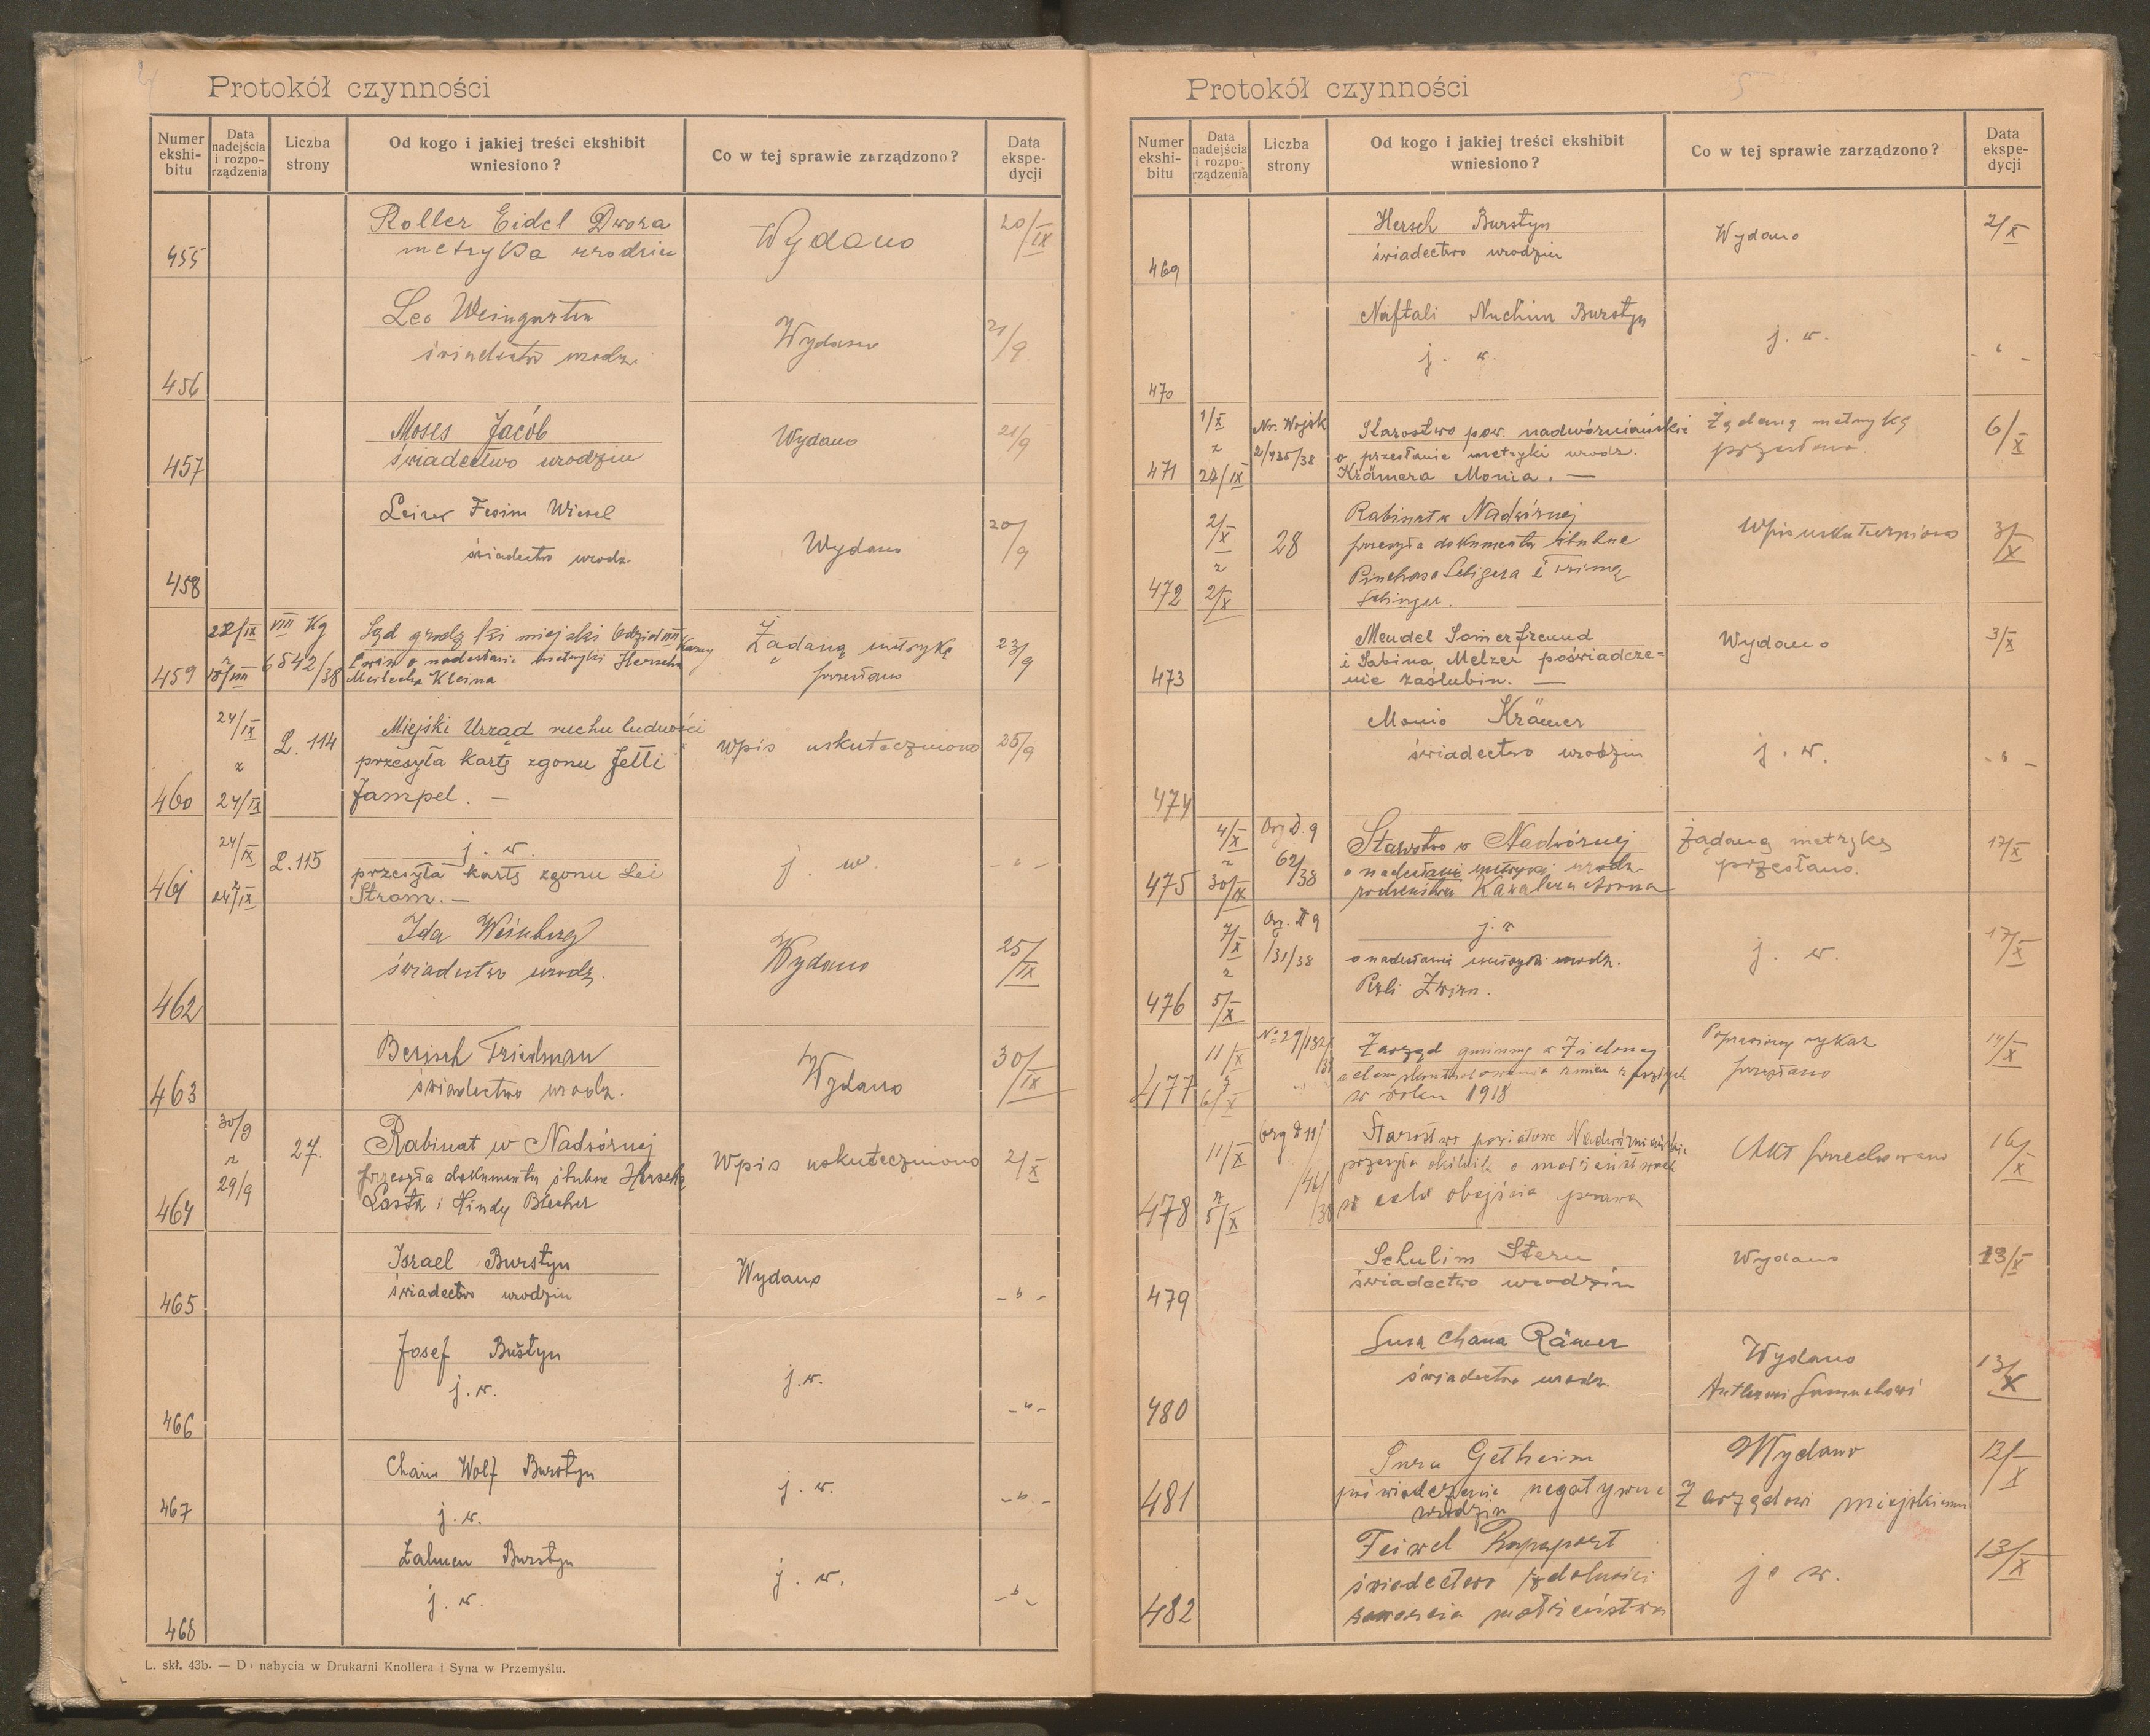 Protokół czynności
Numer ekshi-bitu
Data nadejścia i rozpo-rządzenia
Liczba strony
Od kogo i jakiej treści ekshibit wniesiono?
Co w tej sprawie zarządzono?
Data ekspe-dycji
455 Roller Eidel Dwora Wydano 20/IX
metryka urodzin
456 Leo Weingarten Wydano 21/9
świadectwo urodz.
457 Moses Jacób Wydano 21/9
świadectwo urodzin
458 Wiesel Wydano 20/9
świadectwo urodz.
459 22/IX VIII Kg 6542/38 Sąd grodzki miejski Oddział VIII Karny Żądaną metrykę 23/9
Lwów o nadesłanie metryki Herscha przesłano
Meilecha Kleina
460 24/IX z 24/IX L. 114 Miejski Urząd ruchu ludności wpis uskuteczniono 25/9
przesyła kartę zgonu Jetti
Jampel. —
461 24/IX z 24/IX L. 115 j. w. j. w. - " -
przesyła kartę zgonu Lei
Strom. —
462 Ida Weinberg Wydano 25/IX
świadectwo urodz.
463 Berisch Friedman Wydano 30/IX
świadectwo urodz.
464 30/9 z 29/9 27. Rabinat w Nadwórnej Wpis uskuteczniono 2/X
przesyła dokumenta ślubne Herscha
Lasta i Hindy Blecher
465 Israel Burstyn Wydano - " -
świadectwo urodzin
466 Josef Bustyn j. w. - " -
j. w.
467 Chaim Wolf Burstyn j. w. - " -
j. w.
468 Zalmen Burstyn j. w. - " -
j. w.
L. skł. 43b. — Do nabycia w Drukarni Knollera i Syna w Przemyślu.
5
Protokół czynności
Numer ekshi-bitu
Data nadejścia i rozpo-rządzenia
Liczba strony
Od kogo i jakiej treści ekshibit wniesiono?
Co w tej sprawie zarządzono?
Data ekspe-dycji
469 Hersch Burstyn Wydano 2/X
świadectwo urodzin
470 Naftali Nuchim Burstyn j. w. - " -
j. w.
471 1/X z 24/IX Nr. Wojsk 2/435/38 Starostwo pow. nadwórniańskie Żądaną metrykę 6/X
o przesłanie metryki urodz. przesłano.
Krämera Monia. —
472 2/X z 2/X 28 Rabinat w Nadwórnej Wpis uskuteczniono 3/X
przesyła dokumenta ślubne
Pinchasa Seligera i
473 Mendel Somerfreund Wydano 3/X
i Sabina Melzer poświadcze=
nie zaślubin. —
474 Monio Krämer j. w. - " -
świadectwo urodzin
475 4/X z 30/IX Org D. 9 62/38 Starostwo w Nadwórnej Żądaną metrykę 17/X
o nadesłanie metryki urodz. przesłano.
rodzeństwa
476 7/X z 5/X Org. D 9 /31/38 j. w. j. w. 17/X
o nadesłanie metryki urodz.
Perli Zwirn.
477 11/X z 6/X Zarząd gminny w Zielonej Poprawiony wykaz 14/X
celem skontrolowania zmian zaszłych przesłano
w roku 1918
478 11/X z 5/X Org D 11/ /41/38 Starostwo powiatowe Nadwórniańskie Akt przechowano 16/X
przesyła okólnik o małżeństwach
w celu obejścia prawa
479 Schulim Stern Wydano 13/X
świadectwo urodzin
480 Sura Chana Rämer Wydano 13/X
świadectwo urodz.
481 Sura Getheim Wydano 13/X
poświadczenie negatywne Zarządowi miejskiemu
urodzin
482 Feiwel Rapaport j. w. 13/X
świadectwo zdolności
zawarcia małżeństwa